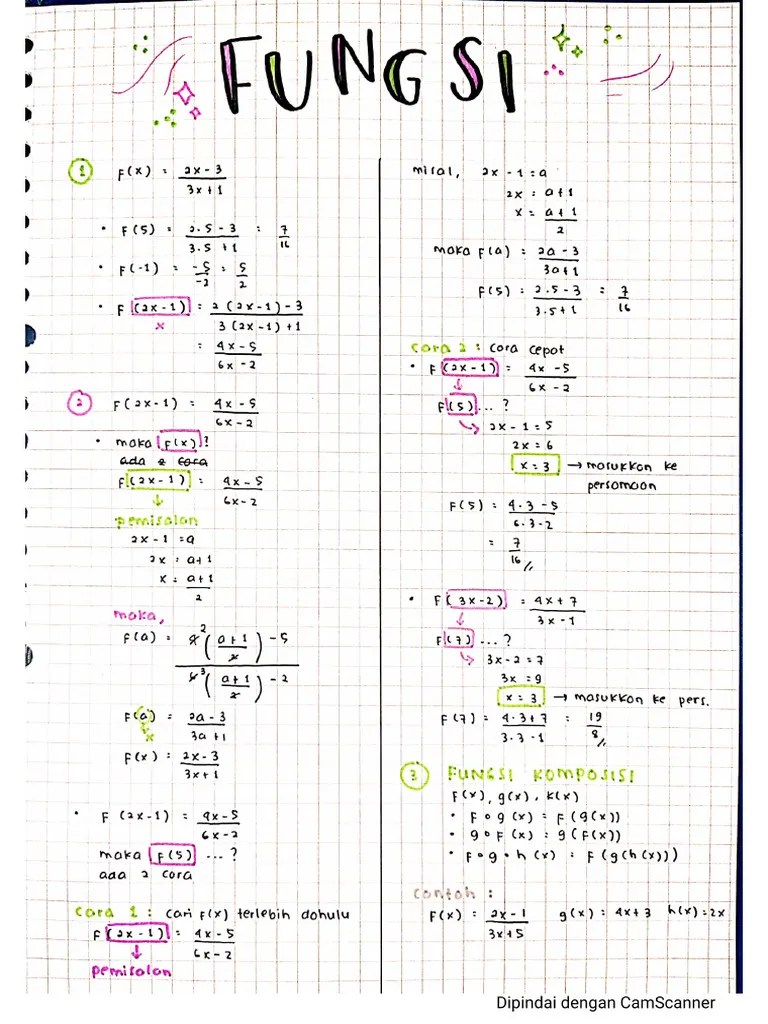 FUNGSI
① F(x) = 2x-3 / 3x+1
• F(5) = 2.5-3 / 3.5+1 = 7/16
• F(-1) = -5/-2 = 5/2
• F(2x-1) = 2(2x-1)-3 / 3(2x-1)+1
x
= 4x-5 / 6x-2
② F(2x-1) = 4x-5 / 6x-2
• maka F(x)?
ada 2 cara
F(2x-1) = 4x-5 / 6x-2
↓
pemisalan
2x-1 = a
2x = a+1
x = a+1 / 2
maka,
F(a) = 4²(a+1 / 2) -5 / 6³(a+1 / 2) -2
F(a) = 2a-3 / 3a+1
x
F(x) = 2x-3 / 3x+1
• F(2x-1) = 4x-5 / 6x-2
maka F(5) ...?
ada 2 cara
cara 1 : cari F(x) terlebih dahulu
F(2x-1) = 4x-5 / 6x-2
↓
pemisalan
misal, 2x-1 = a
2x = a+1
x = a+1 / 2
maka F(a) = 2a-3 / 3a+1
F(5) = 2.5-3 / 3.5+1 = 7/16
cara 2 : cara cepat
• F(2x-1) = 4x-5 / 6x-2
↓
F(5) ...?
↪ 2x-1 = 5
2x = 6
x = 3 → masukkan ke
persamaan
F(5) = 4.3-5 / 6.3-2
= 7/16 //
• F(3x-2) = 4x+7 / 3x-1
↓
F(7) ...?
↪ 3x-2 = 7
3x = 9
x = 3 → masukkan ke pers.
F(7) = 4.3+7 / 3.3-1 = 19/8 //
③ FUNGSI KOMPOSISI
F(x), g(x), k(x)
• F∘g(x) = F(g(x))
• g∘F(x) = g(F(x))
• F∘g∘h(x) = F(g(h(x)))
contoh :
F(x) = 2x-1 / 3x+5 g(x) = 4x+3 h(x) = 2x
Dipindai dengan CamScanner